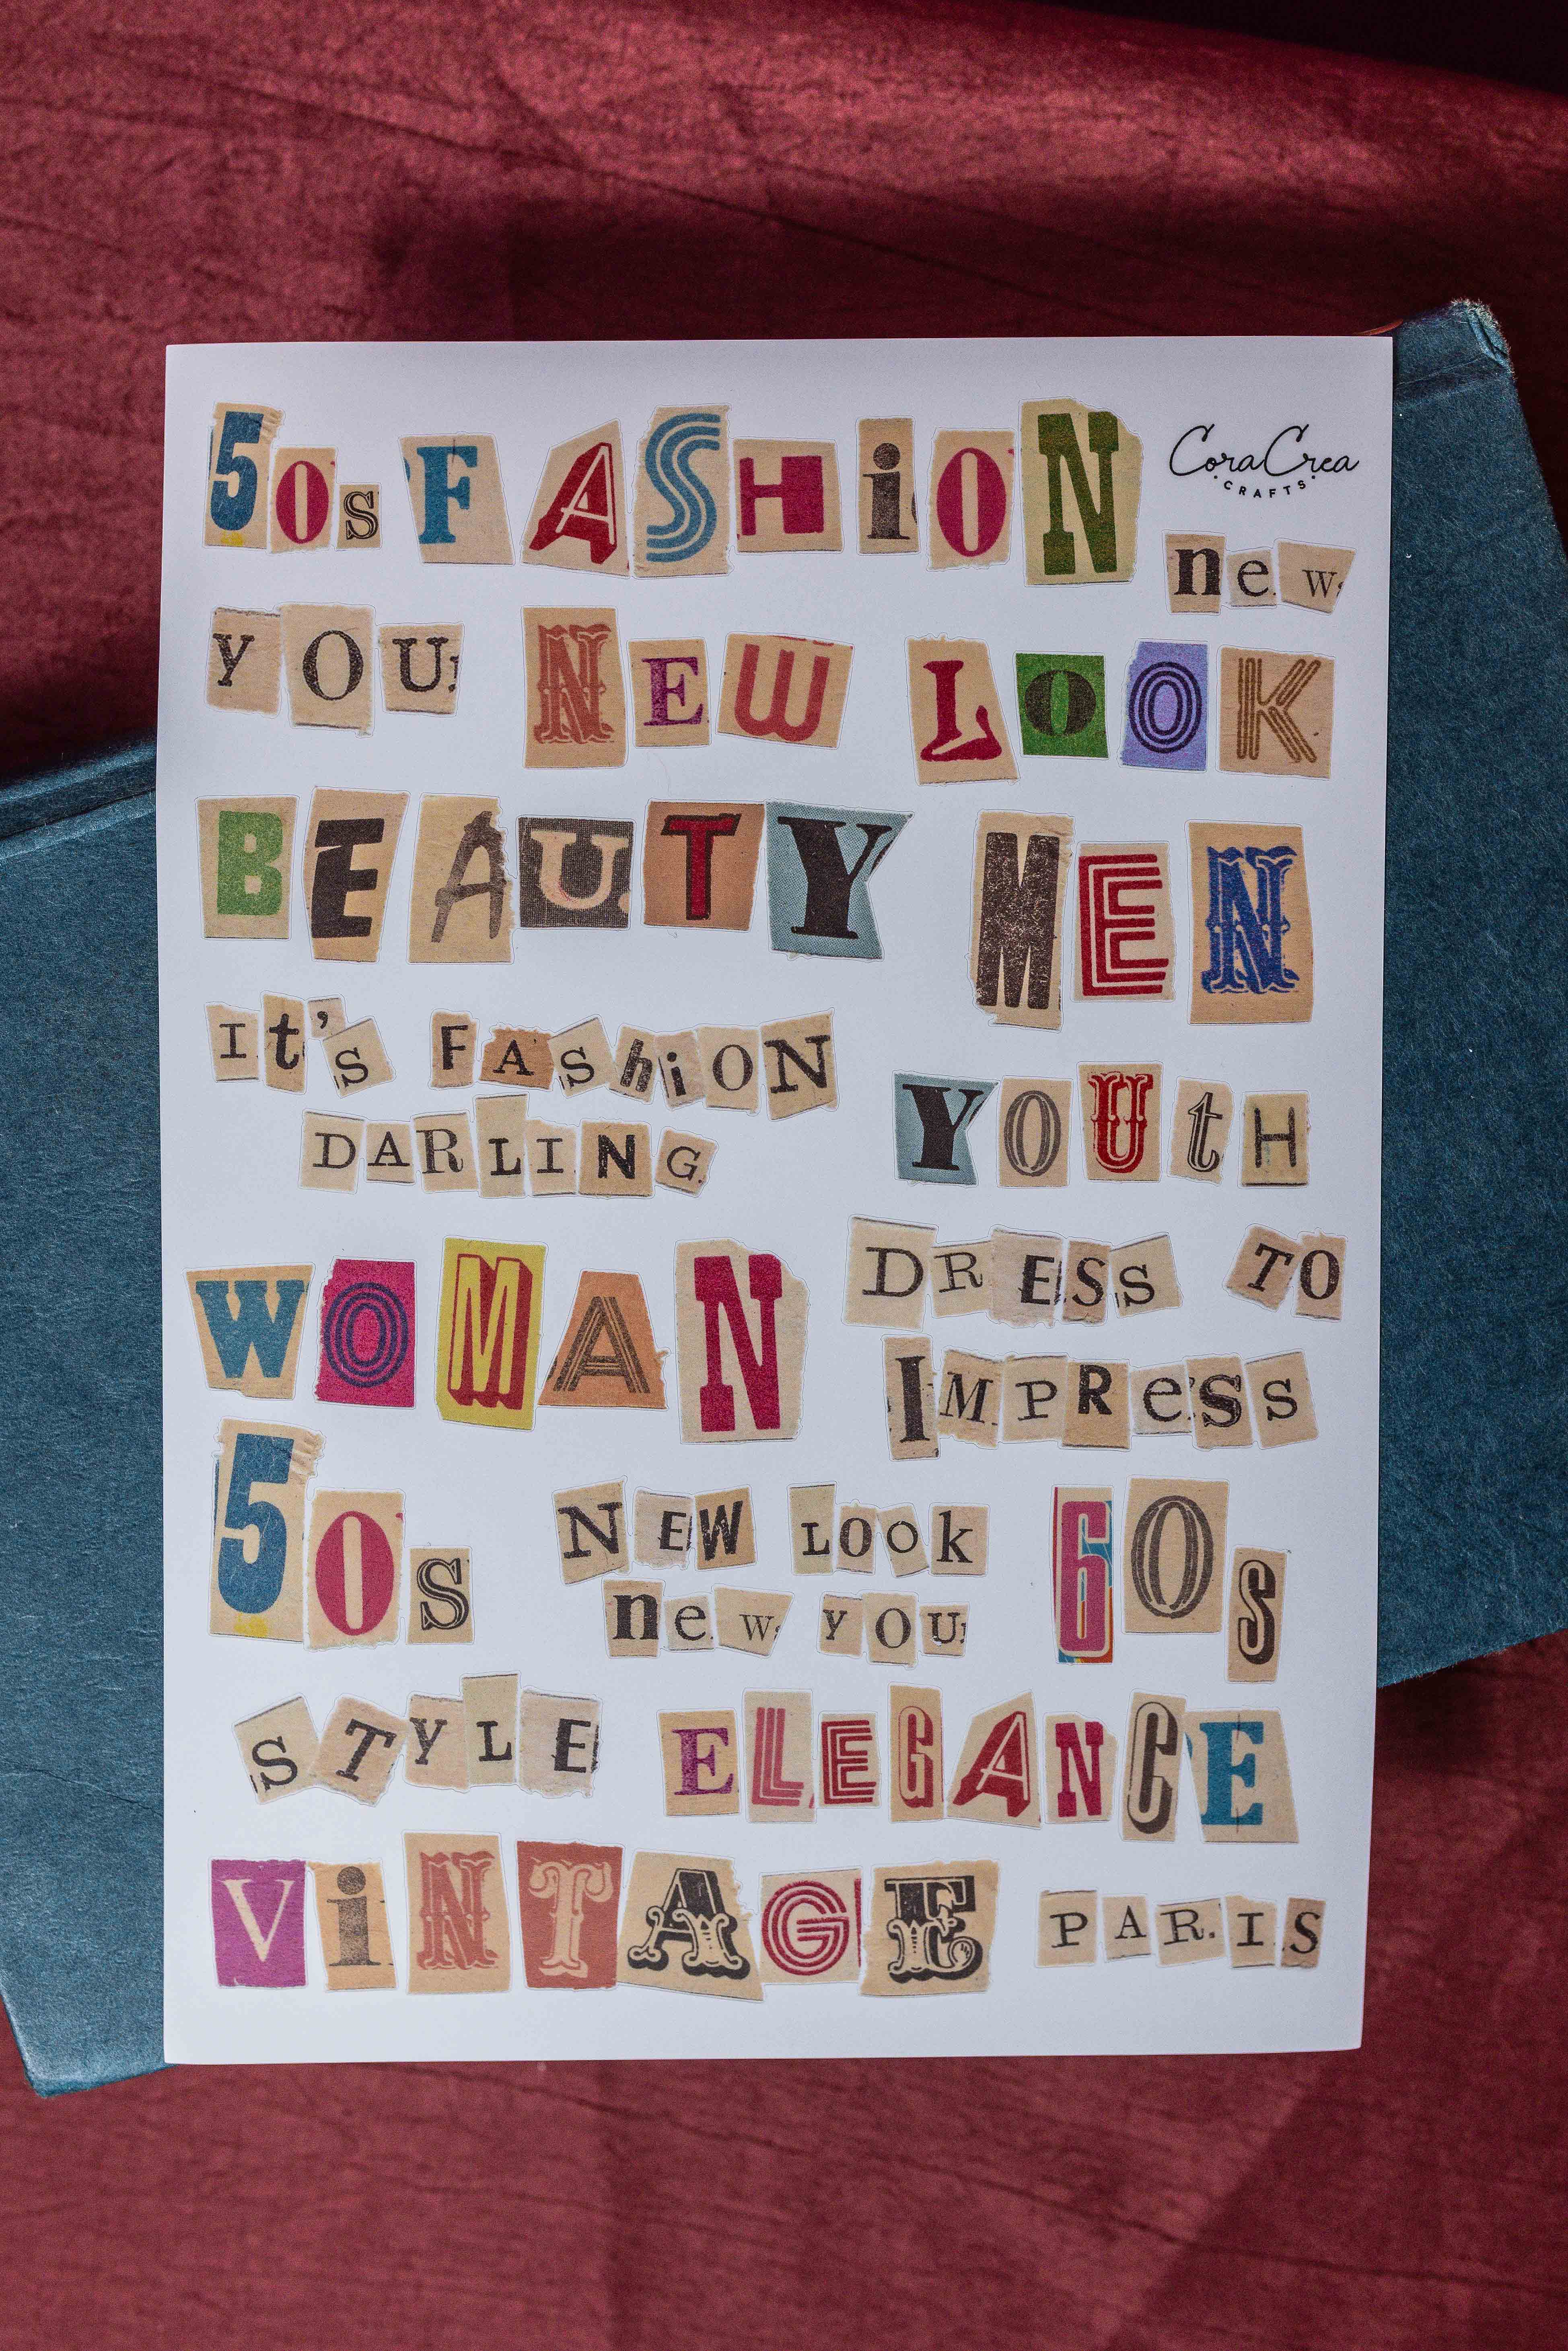 50s FASHiON
CoraCrea
·CRAFTS·
new
yOU NEW LOOK
BEAUTY MEN
It's FAShiON
DARLING
YOUtH
WOMAN
DRESS TO
IMPReSS
50s
NEW LOOk
new yOU
60s
STYLE ELEGANCE
ViNTAGE PARIS